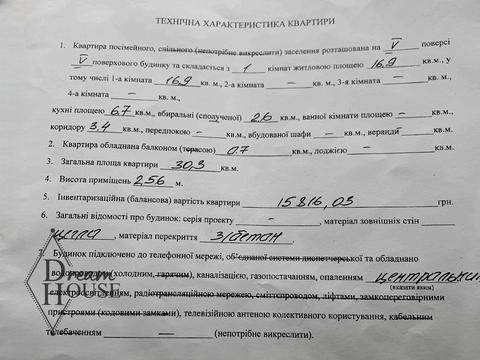 ТЕХНІЧНА ХАРАКТЕРИСТИКА КВАРТИРИ
1. Квартира посімейного, спільного (непотрібне викреслити) заселення розташована на V поверсі
V поверхового будинку та складається з 1 кімнат житловою площею 16,9 кв.м., у
тому числі 1-а кімната 16,9 кв. м., 2-а кімната – кв. м., 3-я кімната – кв. м.,
4-а кімната – кв. м.,
кухні площею 6.7 кв.м., вбиральні (сполученої) 2.6 кв.м., ванної кімнати площею – кв.м.,
коридору 3.4 кв.м., передпокою – кв.м., вбудованої шафи – кв.м., веранди – кв.м.
2. Квартира обладнана балконом (терасою) 0.7 кв.м., лоджією – кв.м.
3. Загальна площа квартири 30,3 кв.м.
4. Висота приміщень 2,56 м.
5. Інвентаризаційна (балансова) вартість квартири 15816,03 грн.
6. Загальні відомості про будинок: серія проекту –, матеріал зовнішніх стін
цегла, матеріал перекриття з/бетан.
7. Будинок підключено до телефонної мережі, об'єднаної системи диспетчерської та обладнано
водопроводом (холодним, гарячим), каналізацією, газопостачанням, опаленням центральним
(вказати яким)
електроосвітленням, радіотрансляційною мережею, сміттєпроводом, ліфтами, замкопереговорними
пристроями (кодовими замками), телевізійною антеною колективного користування, кабельним
телебаченням (непотрібне викреслити).
Dream
HOUSE